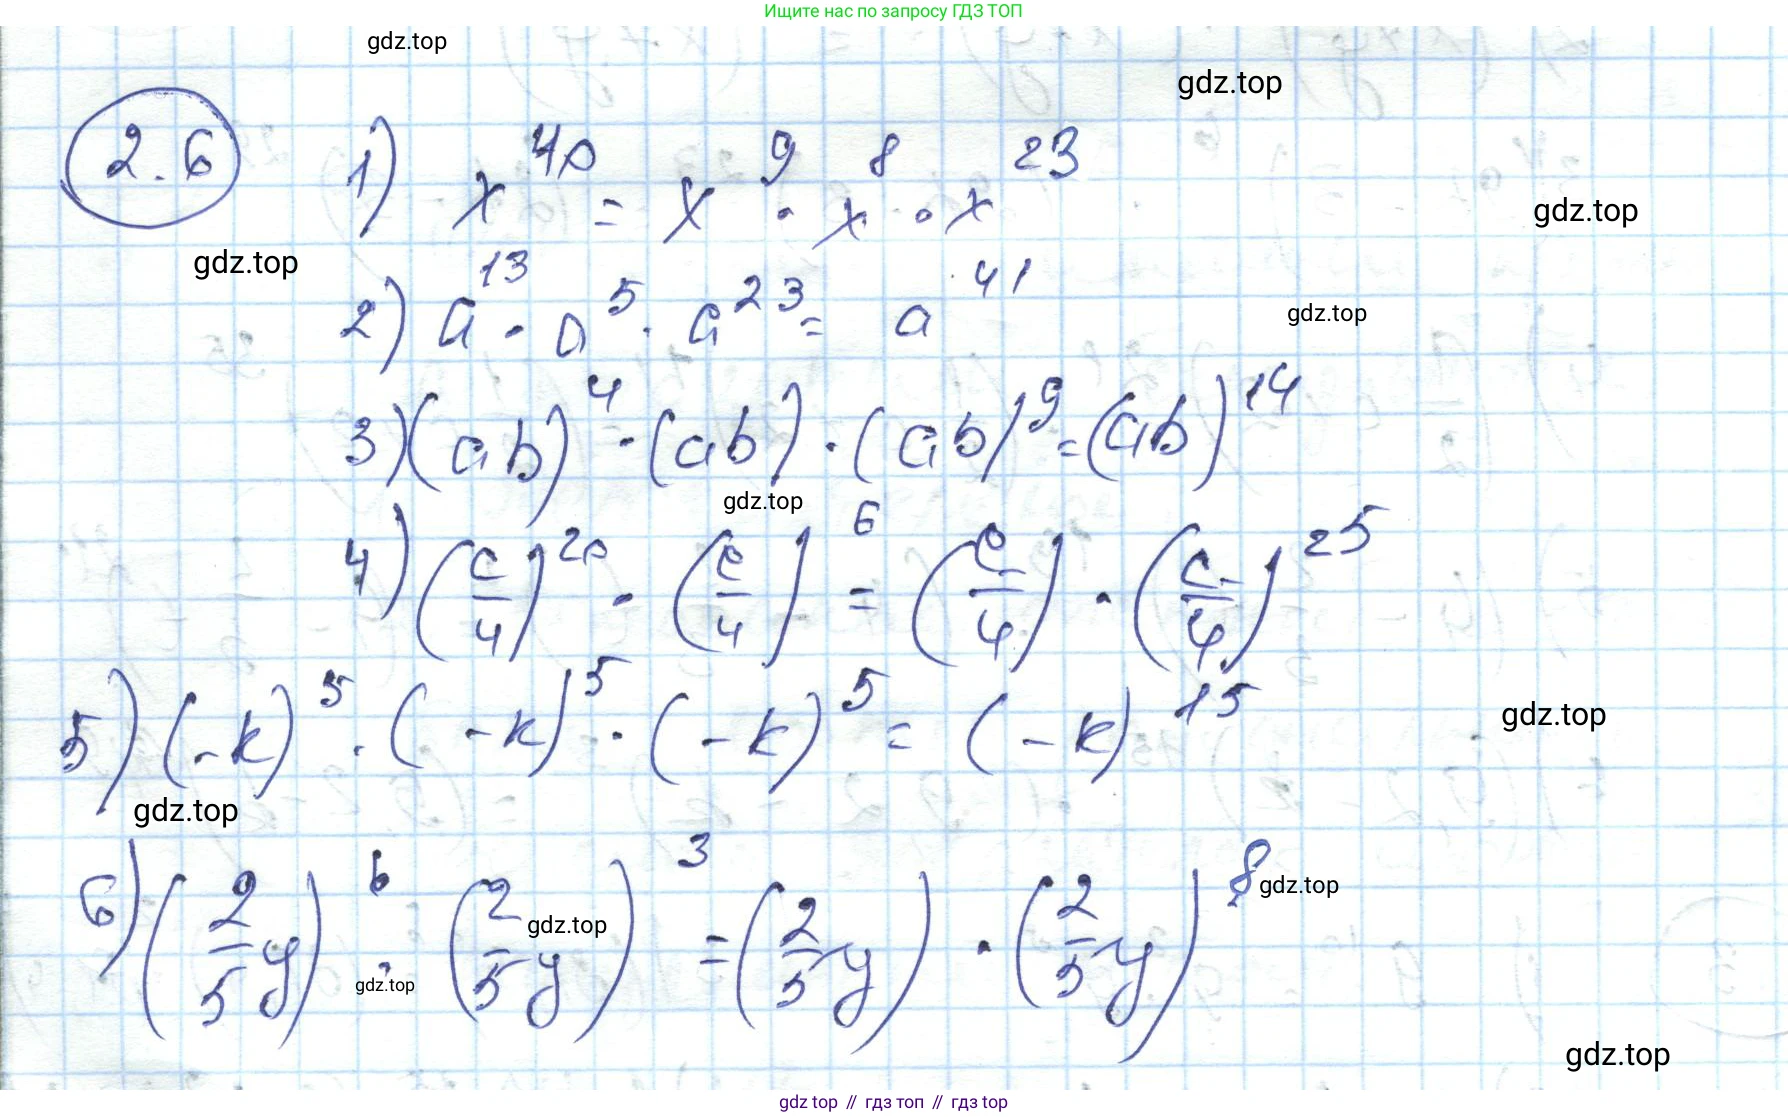 Ищите нас по запросу ГДЗ ТОП
gdz.top
gdz.top
2.6 1) x^40 = x^9 · x^8 · x^23
gdz.top
gdz.top
2) a^13 · a^5 · a^23 = a^41
gdz.top
3) (ab)^4 · (ab) · (ab)^9 = (ab)^14
gdz.top
4) (c/4)^20 · (c/4)^6 = (c/4) · (c/4)^25
5) (-k)^5 · (-k)^5 · (-k)^5 = (-k)^15
gdz.top
gdz.top
6) (2/5 y)^6 · (2/5 y)^3 = (2/5 y) · (2/5 y)^8
gdz.top
gdz.top
gdz.top
gdz.top
gdz top // гдз топ // гдз top